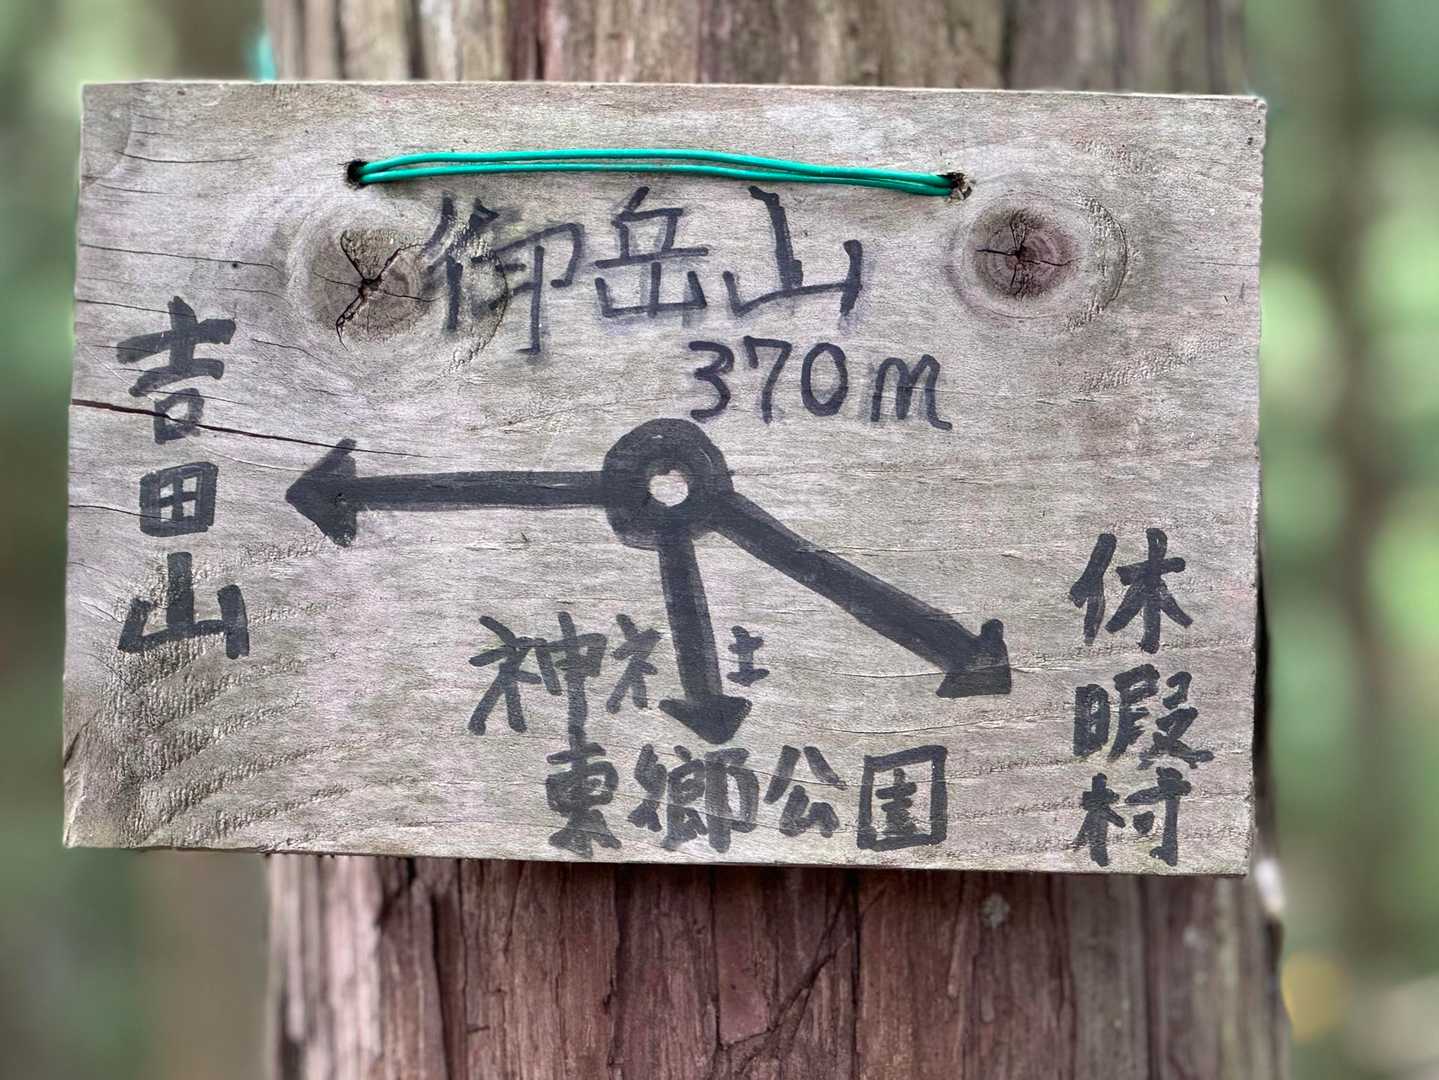 御岳山
370m
吉田山
神社
東郷公園
休暇村